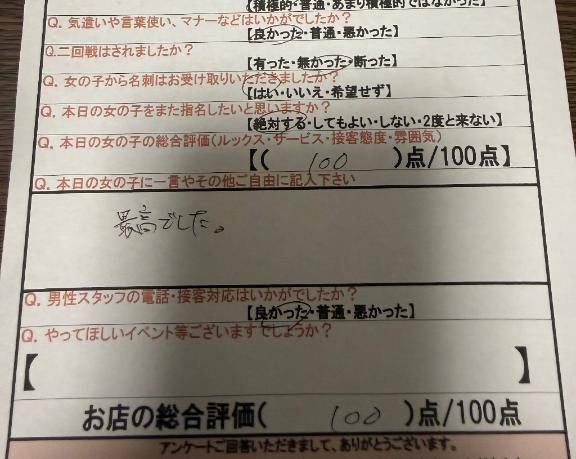 【積極的・普通・あまり積極的ではなかった】
Q. 気遣いや言葉使い、マナーなどはいかがでしたか？
【良かった・普通・悪かった】
Q.二回戦はされましたか？
【有った・無かった・断った】
Q. 女の子から名刺はお受け取りいただきましたか？
【はい・いいえ・希望せず】
Q. 本日の女の子をまた指名したいと思いますか？
【絶対する・してもよい・しない・2度と来ない】
Q. 本日の女の子の総合評価(ルックス・サービス・接客態度・雰囲気)
【( 100 )点/100点】
Q. 本日の女の子に一言やその他ご自由に記入下さい
最高でした。
Q. 男性スタッフの電話・接客対応はいかがでしたか？
【良かった・普通・悪かった】
Q. やってほしいイベント等ございますでしょうか？
【 】
お店の総合評価( 100 )点/100点
アンケートご回答いただきまして、ありがとうございます。